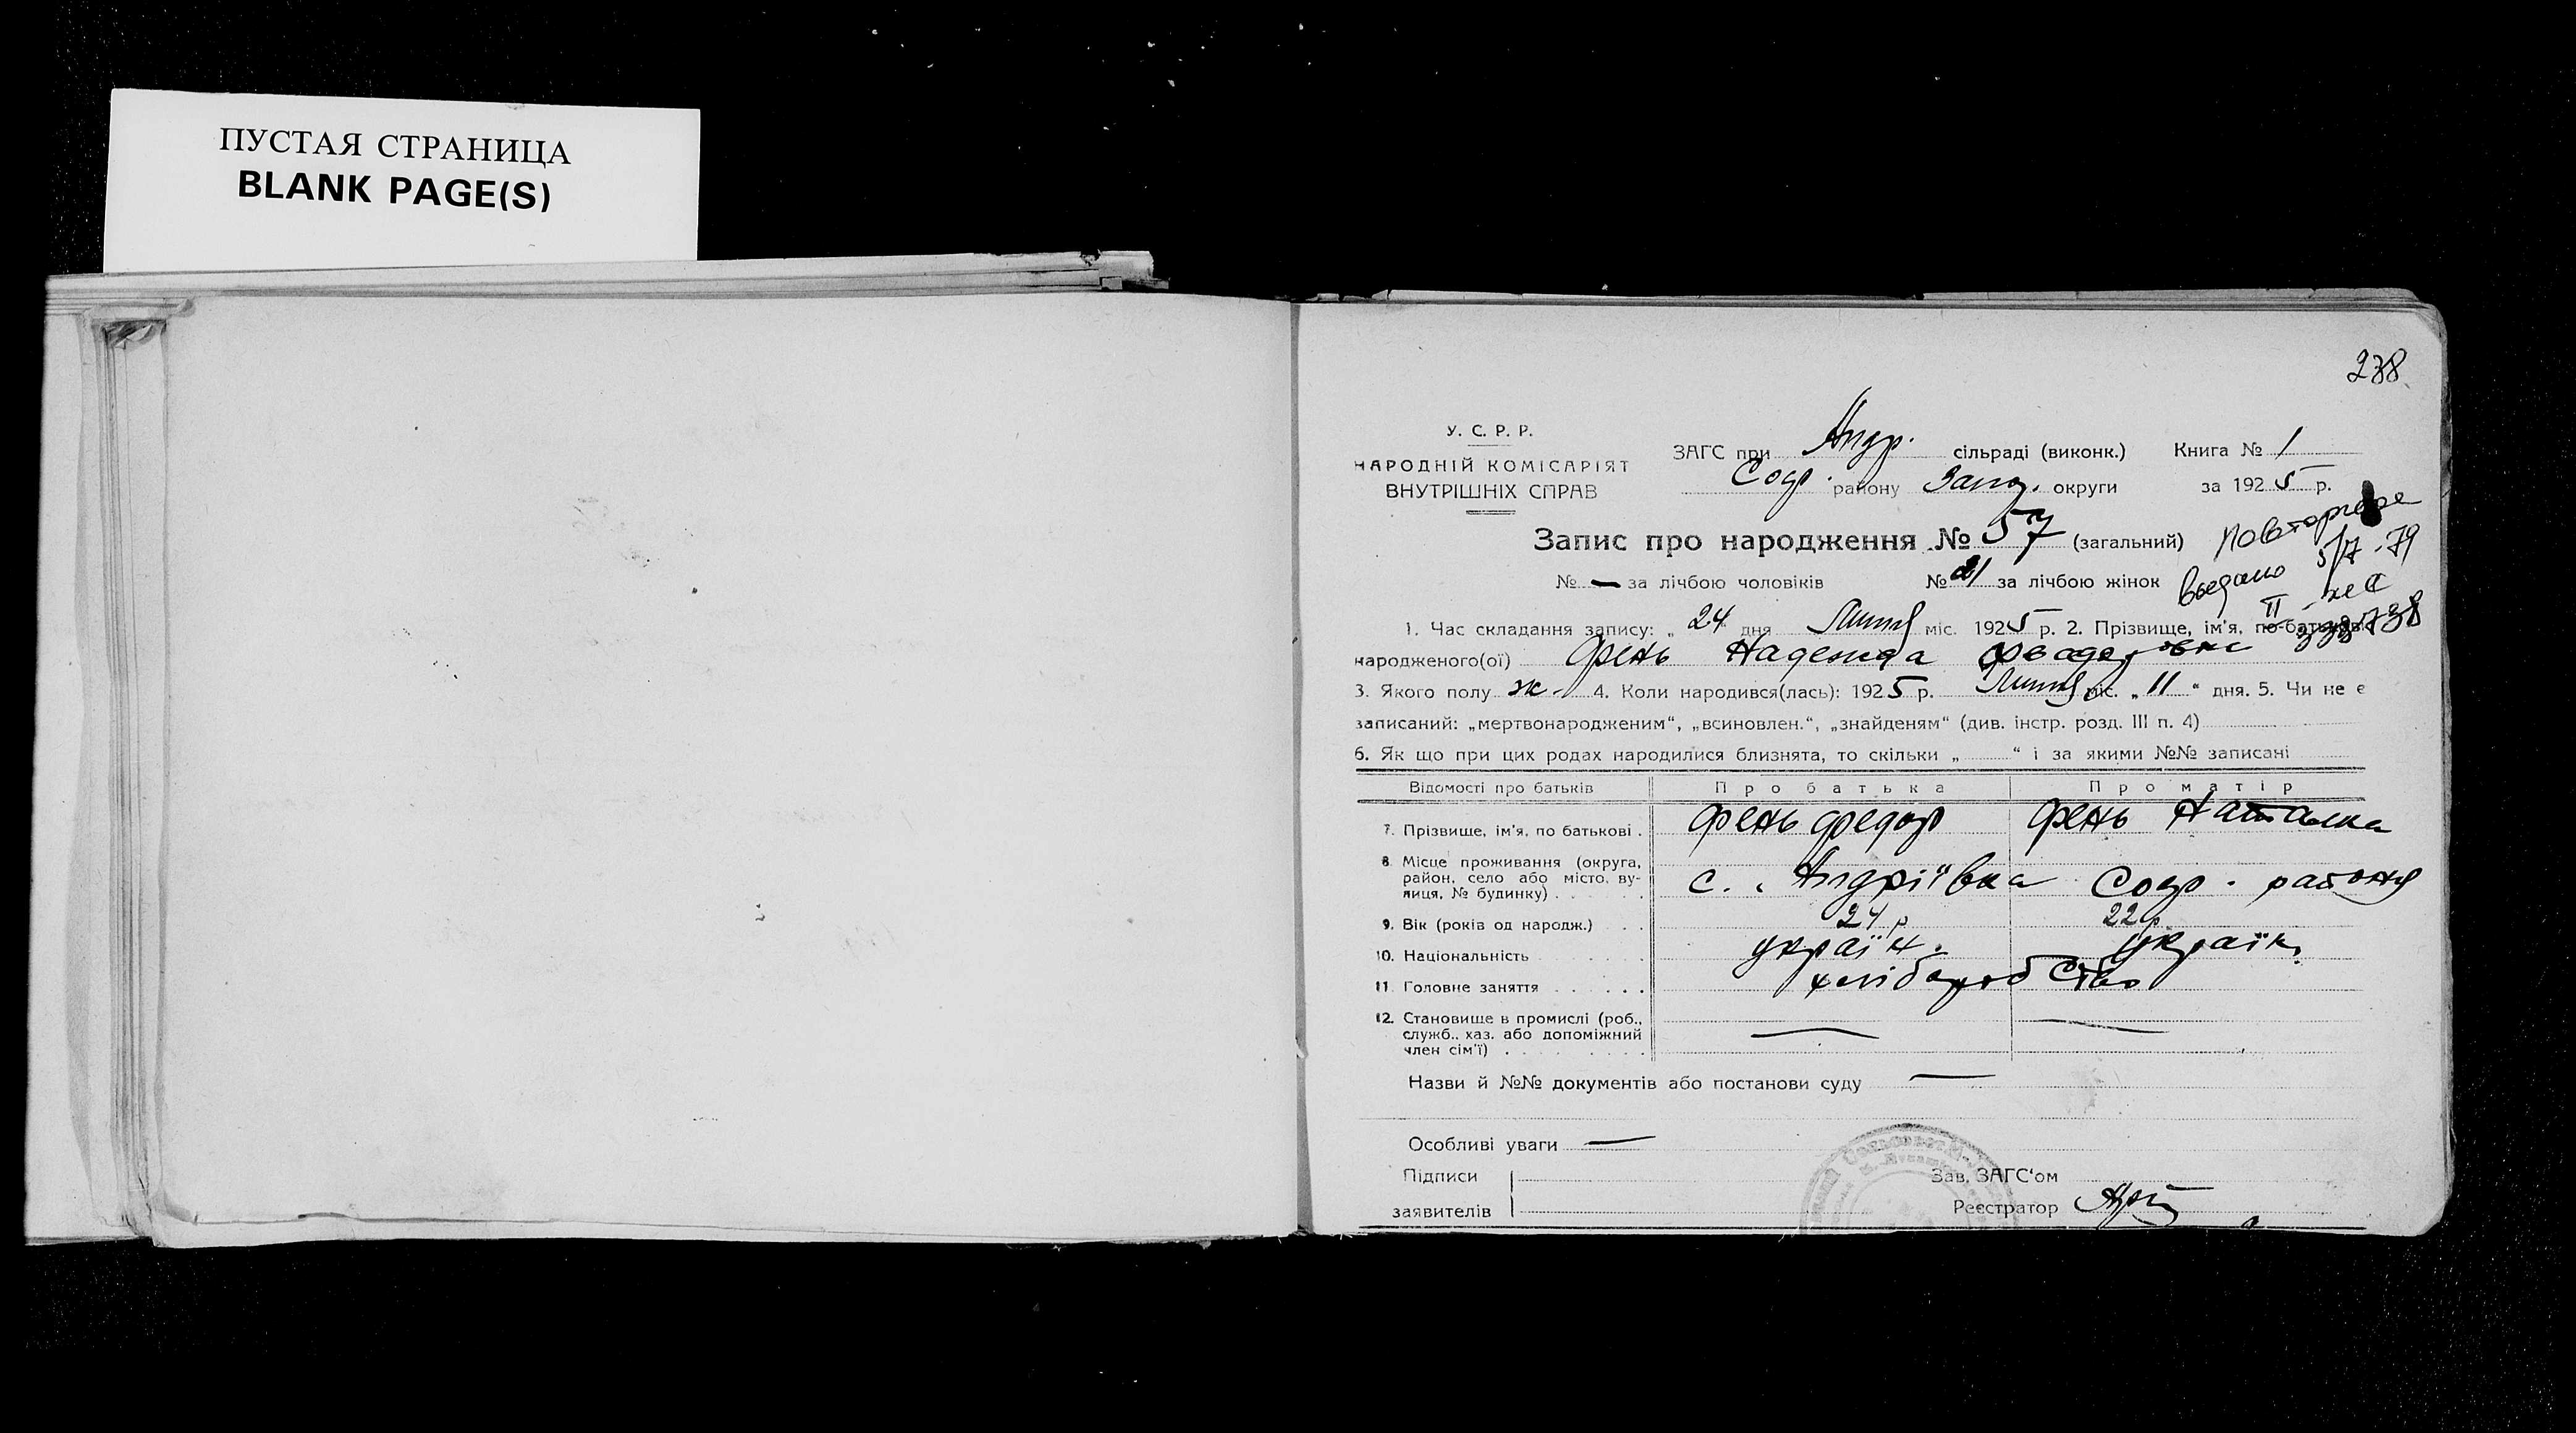 ПУСТАЯ СТРАНИЦА
BLANK PAGE(S)
238
У. С. Р. Р.
НАРОДНІЙ КОМІСАРІЯТ
ВНУТРІШНІХ СПРАВ
ЗАГС при Андр. сільраді (виконк.) Книга № 1
Софр. району Запор. округи за 1925 р.
Запис про народження № 57 (загальний)
повторное
5/7-79
№ — за лічбою чоловіків № 21 за лічбою жінок
выдано
II - жс
338738
1. Час складання запису: „ 24 дня Липня міс. 1925 р. 2. Прізвище, ім'я, по-батькові
народженого(ої) Фень Надежда
3. Якого полу ж. 4. Коли народився(лась): 1925 р. Липня міс. „ 11 “ дня. 5. Чи не є
записаний: „мертвонародженим“, „всиновлен.“, „знайденям“ (див. інстр. розд. III п. 4)
6. Як що при цих родах народилися близнята, то скільки „ “ і за якими №№ записані
Відомості про батьків Про батька Про матір
7. Прізвище, ім'я, по батькові . Фень Федор Фень Наталка
8. Місце проживання (округа, район, село або місто, ву-
лиця, № будинку) . с. Андріївка Софр. району
9. Вік (років од народж.) . . 24 р 22 р
10. Національність україн. україн.
11. Головне заняття . хліборобство
12. Становище в промислі (роб.,
служб., хаз. або допоміжний
член сім'ї) . — —
Назви й №№ документів або постанови суду —
Особливі уваги —
Підписи Зав. ЗАГС'ом
заявителів Реєстратор